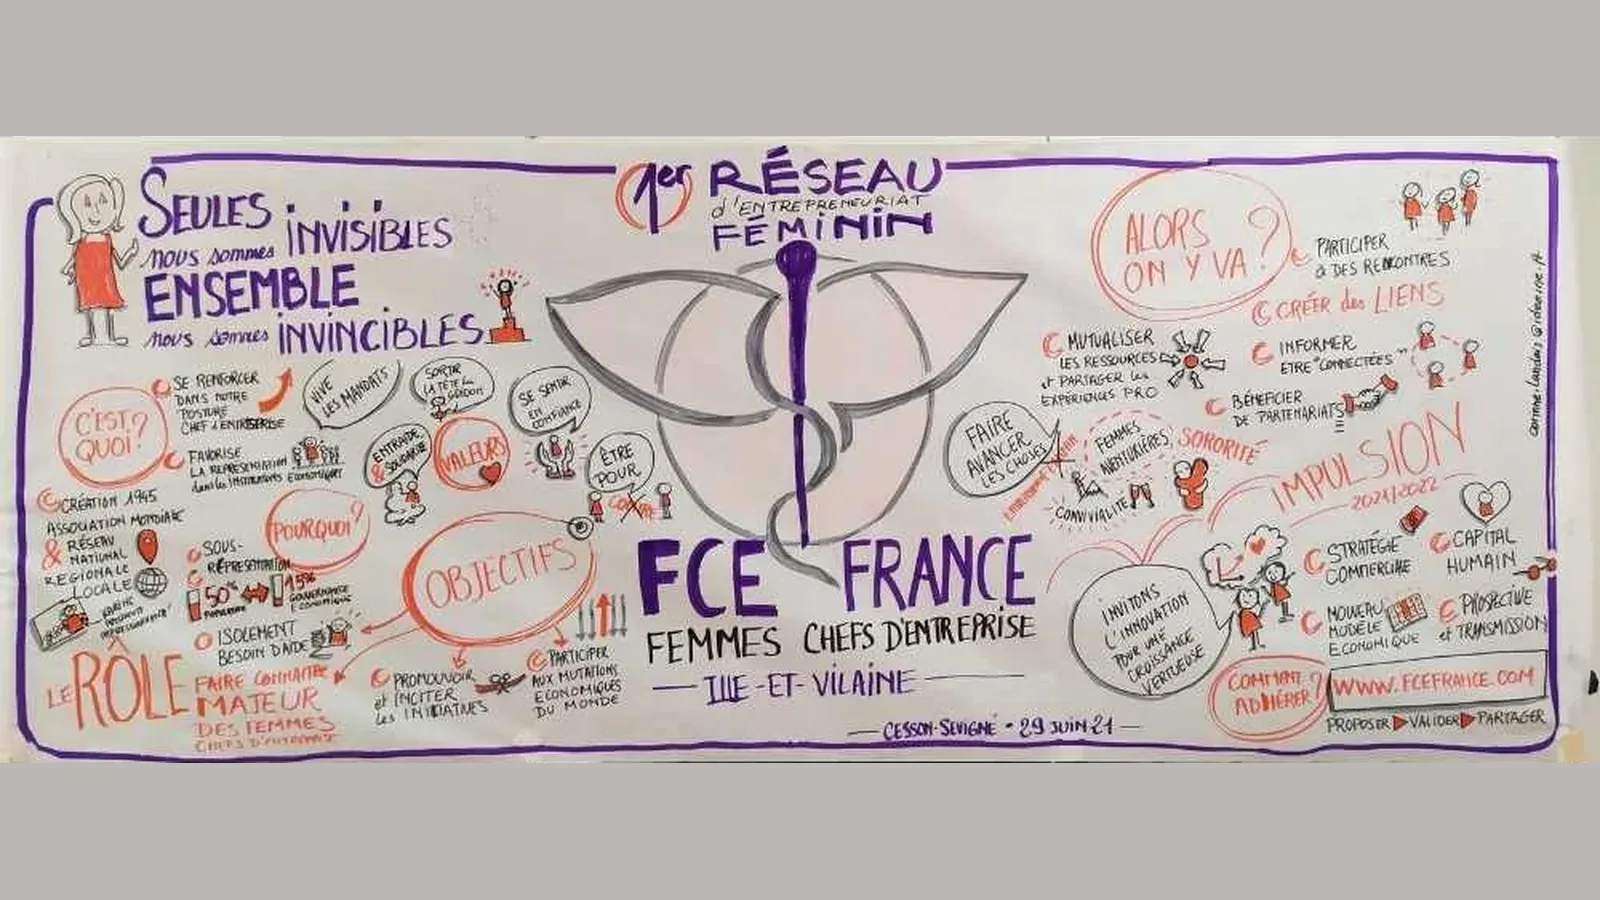 SEULES
nous sommes INVISIBLES
ENSEMBLE
nous sommes INVINCIBLES
C'EST QUOI?
SE RENFORCER
DANS NOTRE
POSTURE
CHEF d'ENTREPRISE
FAVORISE
LA REPRÉSENTATION
dans les INSTANCES ECONOMIQUES
CRÉATION 1945
ASSOCIATION MONDIALE
& RÉSEAU
NATIONAL
REGIONALE
LOCALE
POURQUOI?
SOUS-
REPRÉSENTATION
50%
15%
GOUVERNANCE
ECONOMIQUE
ISOLEMENT
BESOIN D'AIDE
VIVE
LES MANDATS
SORTIR
LA TÊTE du
GUIDON
SE SENTIR
EN
CONFIANCE
ENTRAIDE
& SOLIDARITÉ
VALEURS
ÊTRE
POUR
CONTRE
OBJECTIFS
LE RÔLE
FAIRE CONNAITRE
MAJEUR
DES FEMMES
CHEFS D'ENTREPRISE
PROMOUVOIR
et INCITER
les INITIATIVES
PARTICIPER
AUX MUTATIONS
ECONOMIQUES
DU MONDE
1er RÉSEAU
d'ENTREPRENEURIAT
FÉMININ
FCE FRANCE
FEMMES CHEFS D'ENTREPRISE
ILLE-ET-VILAINE
CESSON-SEVIGNÉ - 29 JUIN 21
ALORS
ON Y VA?
PARTICIPER
à DES RENCONTRES
CRÉER des LIENS
MUTUALISER
LES RESSOURCES
et PARTAGER les
EXPÉRIENCES PRO
INFORMER
ETRE "CONNECTÉES"
BÉNÉFICIER
DE PARTENARIATS
FAIRE
AVANCER
LES CHOSES
FEMMES
AVENTURIÈRES
SORORITÉ
CONVIVIALITÉ
IMPULSION
2021/2022
INVITONS
L'INNOVATION
POUR UNE
CROISSANCE
VERTUEUSE
STRATÉGIE
COMMERCIALE
CAPITAL
HUMAIN
NOUVEAU
MODÈLE
ECONOMIQUE
PROSPECTIVE
et TRANSMISSION
COMMENT
ADHÉRER?
WWW.FCEFRANCE.COM
PROPOSER VALIDER PARTAGER